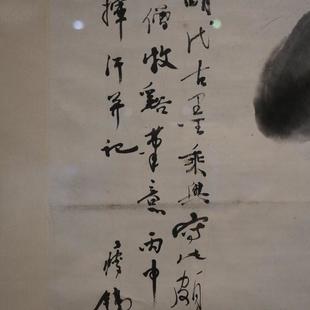 明代古墨乘興寫此頗
僧牧谿筆意丙申
揮汗并記